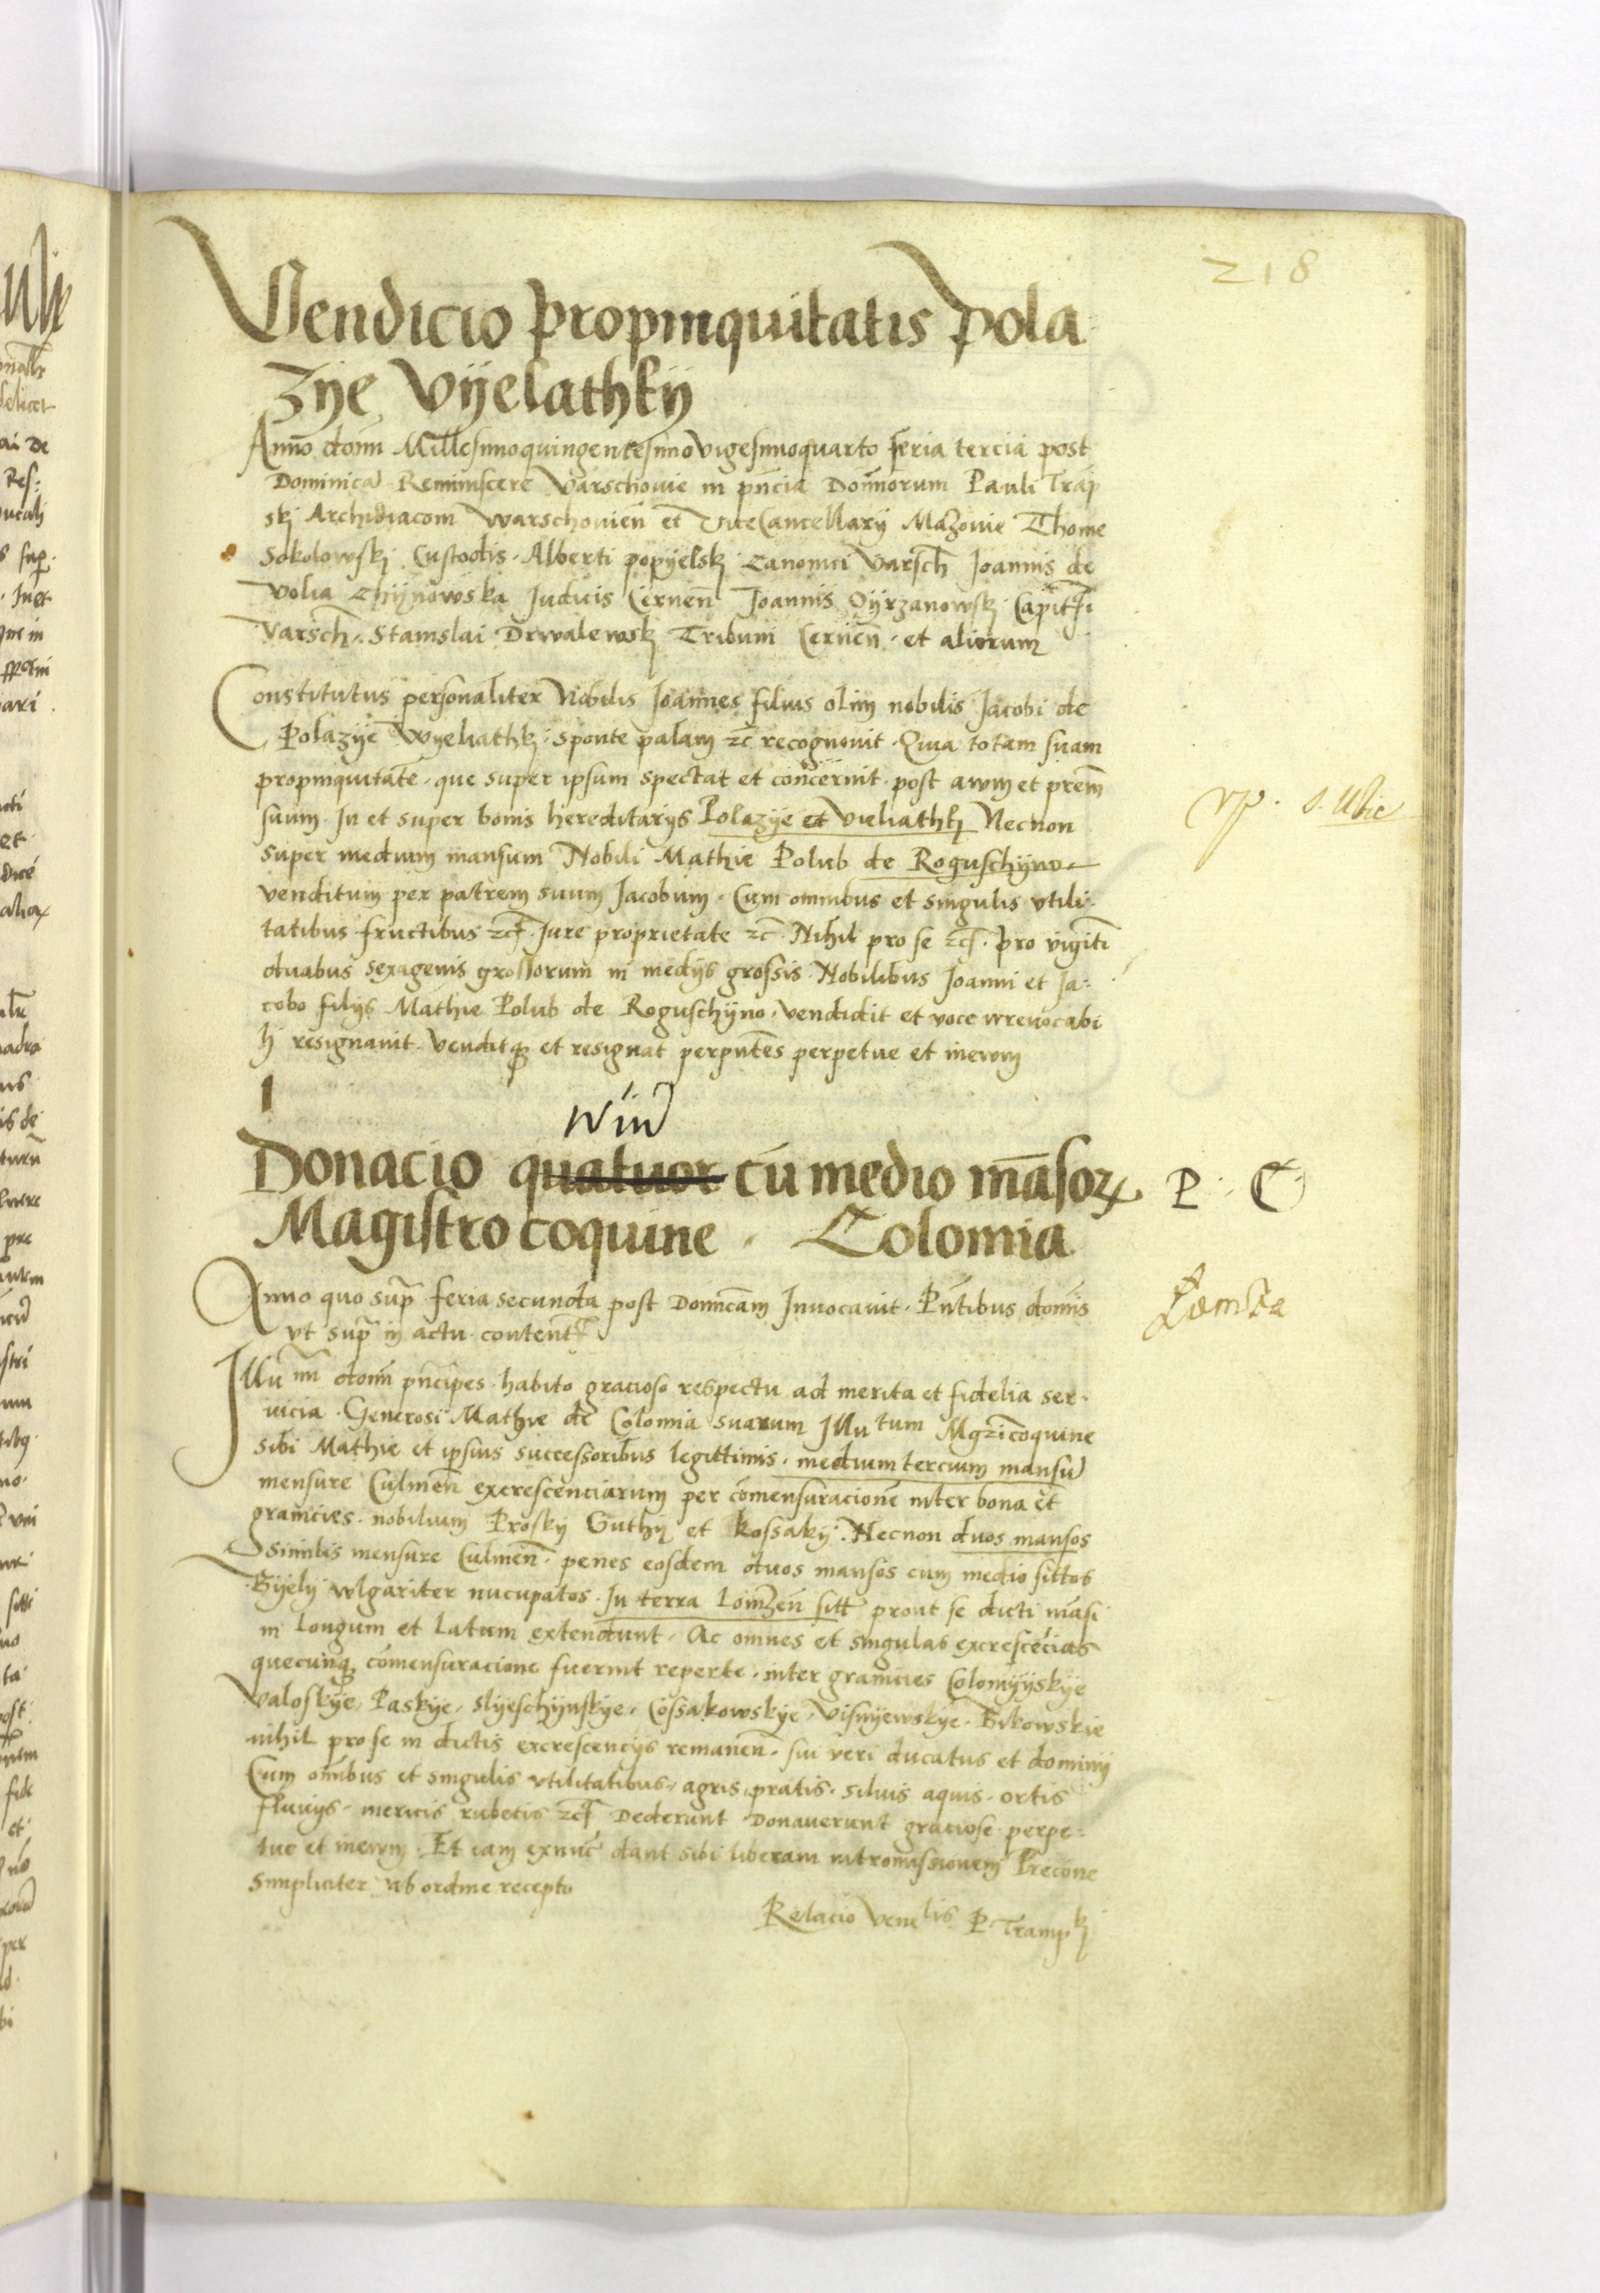 218
Vendicio propinquitatis Pola
zye Vyelathky
Anno domi Millesimoquingentesimovigesimoquarto feria tercia post
Dominica Reminiscere Varschouie in pncia Domnorum Pauli Tramp
skj Archidiaconi Warschouien et ViceCancellarij Mazouie Thome
Sokolowskj Custodis. Alberti popyelskj Canonici Varsch Joannis de
Volia Chynowska Judicis Cernen Joannis Oyrzanowskj Capit
Varsch. Stanislai Drwalewskj Tribuni Cernen. et aliorum
Constitutus personaliter Nobilis Joannes filius olim nobilis Jacobi de
Polazye Wyeliathkj. sponte palam zc recognouit. Quia totam suam
propinquitate. que super ipsum spectat et concernit. post awm et prem
suum. In et super bonis hereditarijs Polazye et Vieliathkj Necnon
super medium mansum Nobili Mathie Polub de Roguschyno
venditum per patrem suum Jacobum. Cum omnibus et singulis vtili
tatibus fructibus zc. Jure proprietate zc. Nihil pro se zc. pro viginti
duabus sexagenis grossorum in medijs grossis. Nobilibus Joanni et Ja:
cobo filijs Mathie Polub de Roguschyno. vendidit et voce irreuocabi
li resignauit. venditque et resignat perpntes perpetue et in ewm
Donacio quatuor cu medio mãsorum
Magistro coquine. Colomia
P. C
Anno quo supra feria secunda post Domcam Inuocauit. Pntibus domis
vt supra in actu. content
Łomza
Illu mi domi pncipes. habito gracioso respectu ad merita et fidelia ser.
uicia. Generosi Mathie de Colomia suarum Illu tum Mgri coquine
sibi Mathie et ipsius successoribus legittimis. medium tercium mansu
mensure Culmen excrescenciarum per comensuracione inter bona et
granicies. nobilium Prosky Guthy et Kossaky. Necnon duos mansos
similis mensure Culmen. penes eosdem duos mansos cum medio sittos
Byely wlgariter nucupatos. In terra Lomzen sitt prout se dicti mãsi
in longum et latum extendunt. Ac omnes et singulas excrescecias
quecunque comensuracione fuerint reperte. inter granicies Colomyyskye
Valoskye, Paskye. slyeschynskye. Cossakowskye. Visnyewskye. Bikowskie
nihil pro se in dictis excrescencijs remanen. siu veri ducatus et dominij
Cum omibus et singulis vtilitatibus. agris pratis. siluis aquis. ortis
fluuijs. mericis rubetis zc Dederunt Donauerunt graciose. perpe:
tue et in ewm. Et iam exnuc dant sibi liberam intromissionem Precone
Simpliciter ab ordine recepto
Relacio Ven lis P. Trampkj